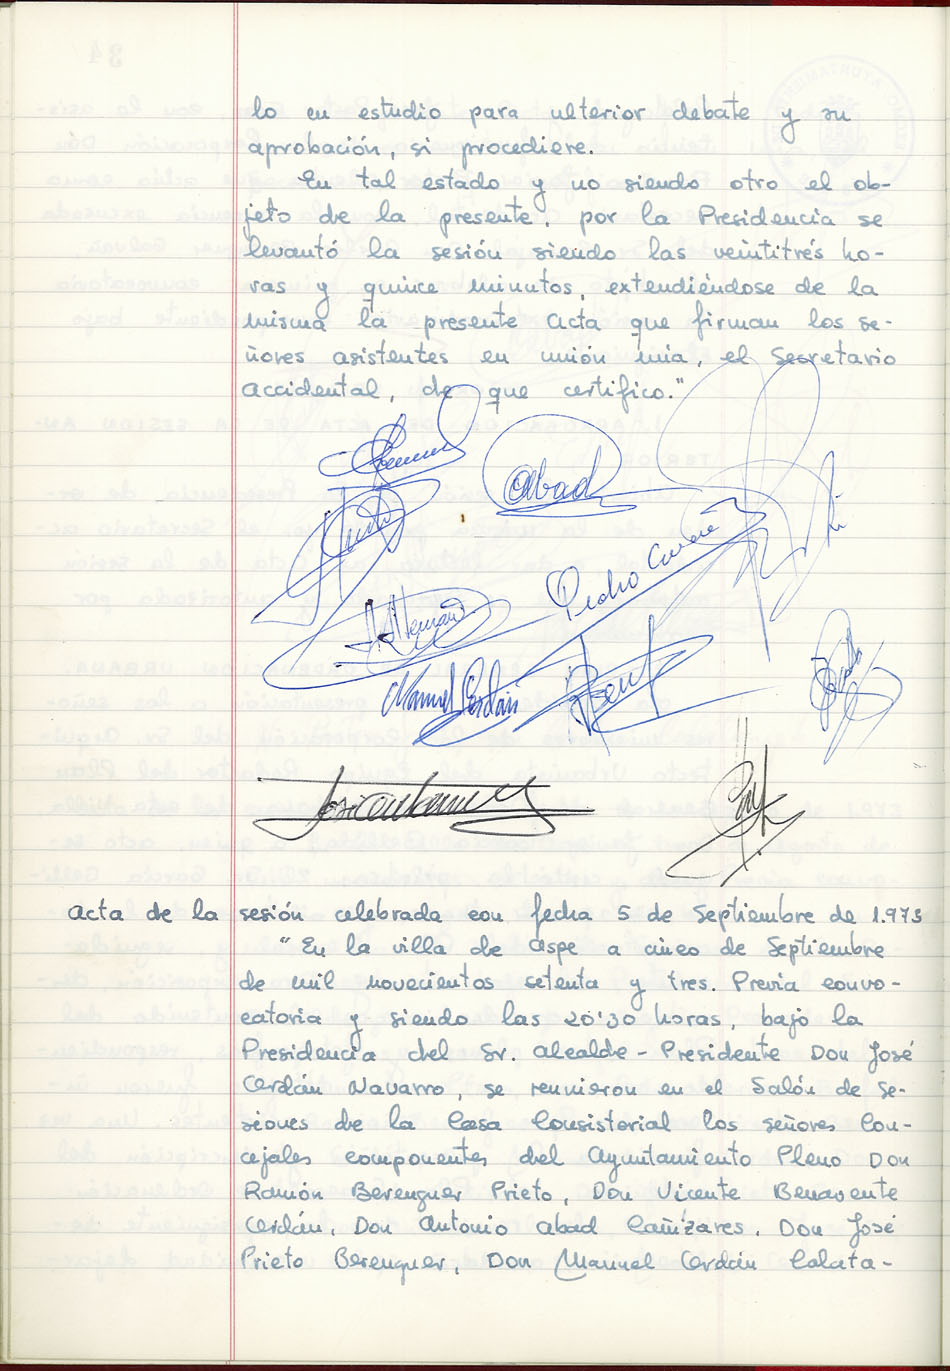 lo en estudio para ulterior debate y su
aprobación, si procediere.
En tal estado y no siendo otro el ob-
jeto de la presente, por la Presidencia se
levantó la sesión siendo las veintitrés ho-
ras y quince minutos, extendiéndose de la
misma la presente Acta que firman los se-
ñores asistentes en unión mía, el Secretario
Accidental, de que certifico."
Abad
Pedro
Manuel Cerdán
Acta de la sesión celebrada con fecha 5 de Septiembre de 1.973
"En la villa de Aspe a cinco de Septiembre
de mil novecientos setenta y tres. Previa convo-
catoria y siendo las 20'30 horas, bajo la
Presidencia del Sr. Alcalde-Presidente Don José
Cerdán Navarro, se reunieron en el Salón de Se-
siones de la Casa Consistorial los señores Con-
cejales componentes del Ayuntamiento Pleno Don
Ramón Berenguer Prieto, Don Vicente Benavente
Cerdán, Don Antonio Abad Cañizares, Don José
Prieto Berenguer, Don Manuel Cerdán Calata-